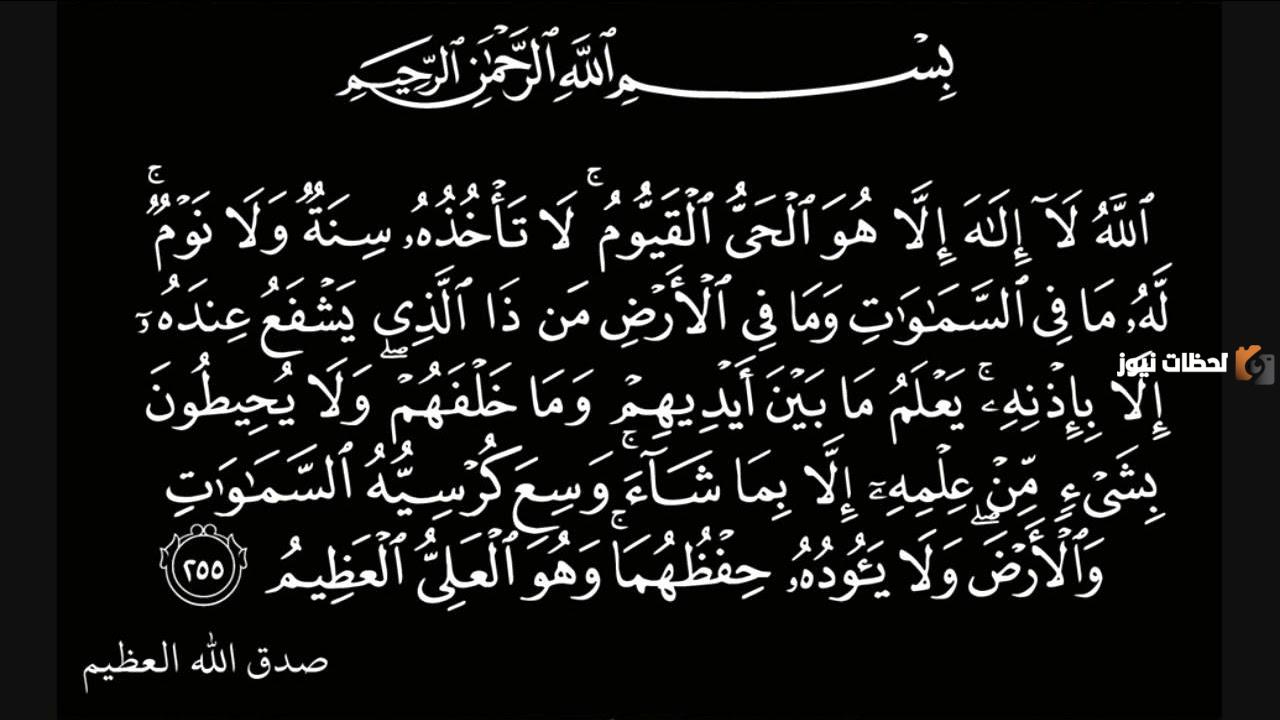 بِسْمِ ٱللَّهِ ٱلرَّحْمَٰنِ ٱلرَّحِيمِ
ٱللَّهُ لَآ إِلَٰهَ إِلَّا هُوَ ٱلْحَىُّ ٱلْقَيُّومُ ۚ لَا تَأْخُذُهُۥ سِنَةٌ وَلَا نَوْمٌ ۚ
لَّهُۥ مَا فِى ٱلسَّمَٰوَٰتِ وَمَا فِى ٱلْأَرْضِ مَن ذَا ٱلَّذِى يَشْفَعُ عِندَهُۥٓ
إِلَّا بِإِذْنِهِۦ ۚ يَعْلَمُ مَا بَيْنَ أَيْدِيهِمْ وَمَا خَلْفَهُمْ ۖ وَلَا يُحِيطُونَ
لحظات نيوز
بِشَىْءٍ مِّنْ عِلْمِهِۦٓ إِلَّا بِمَا شَآءَ ۚ وَسِعَ كُرْسِيُّهُ ٱلسَّمَٰوَٰتِ
وَٱلْأَرْضَ ۖ وَلَا يَـُٔودُهُۥ حِفْظُهُمَا ۚ وَهُوَ ٱلْعَلِىُّ ٱلْعَظِيمُ ٢٥٥
صدق الله العظيم